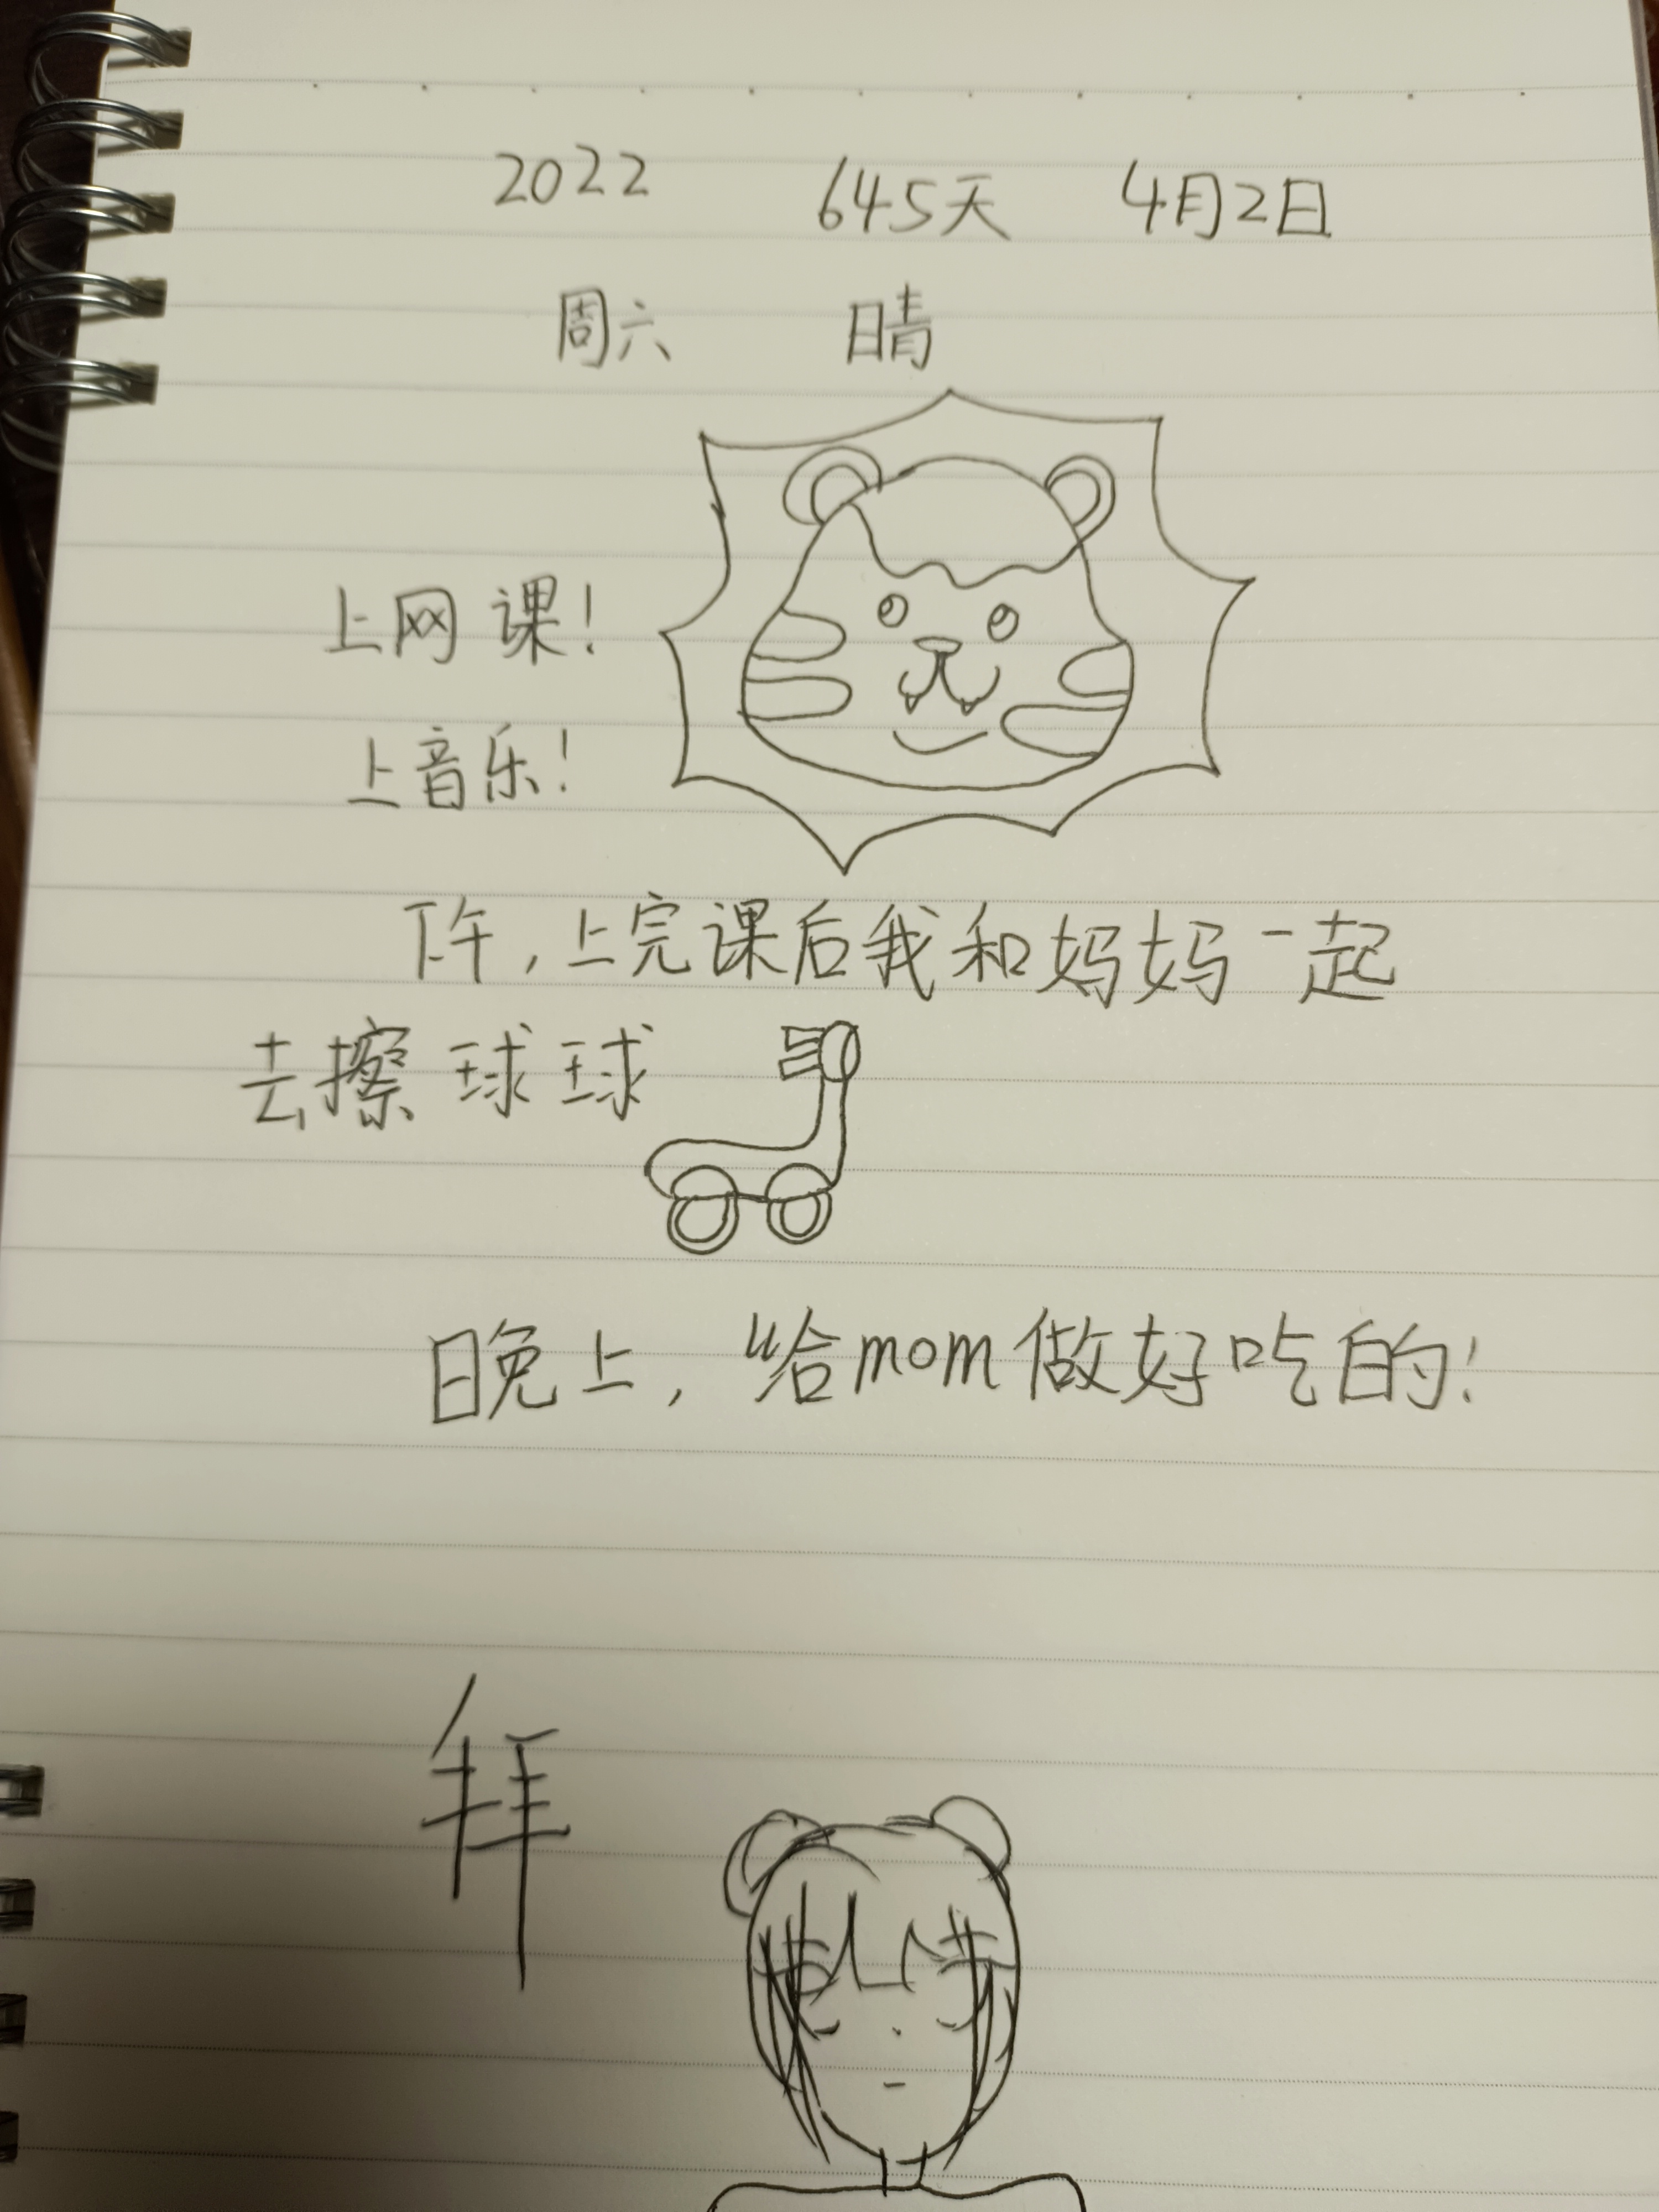 2022 645天 4月2日
周六 晴
上网课!
上音乐!
下午,上完课后我和妈妈一起
去擦球球
晚上,给mom做好吃的!
拜